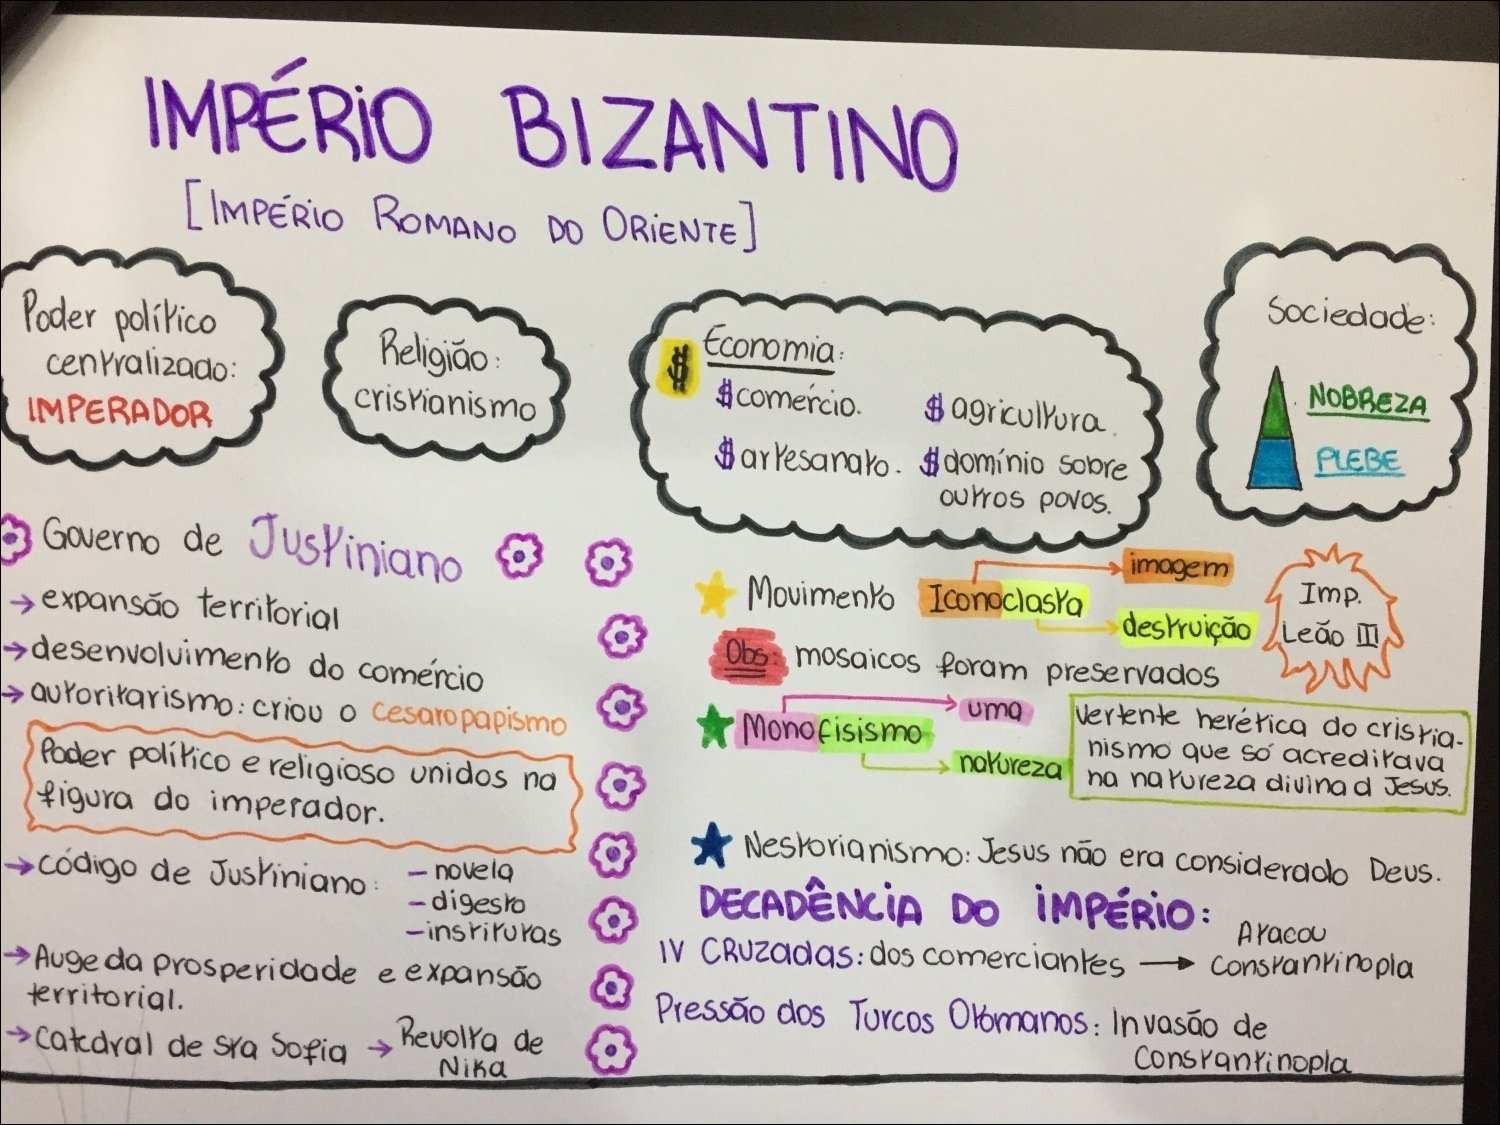 IMPÉRIO BIZANTINO
[IMPÉRIO ROMANO DO ORIENTE]
Poder político
centralizado:
IMPERADOR
Religião:
cristianismo
$ Economia:
$ comércio.
$ agricultura.
$ artesanato.
$ domínio sobre
outros povos.
Sociedade:
NOBREZA
PLEBE
Governo de Justiniano
→ expansão territorial
→ desenvolvimento do comércio
→ autoritarismo: criou o cesaropapismo
Poder político e religioso unidos na
figura do imperador.
→ código de Justiniano:
- novela
- digesto
- instituras
→ Auge da prosperidade e expansão
territorial.
→ Catedral de sta Sofia → Revolta de
Nika
Movimento Iconoclasta
imagem
destruição
Imp.
Leão III
Obs: mosaicos foram preservados
Monofisismo
uma
natureza
Vertente herética do cristia-
nismo que só acreditava
na natureza divina d Jesus.
Nestorianismo: Jesus não era considerado Deus.
DECADÊNCIA DO IMPÉRIO:
IV CRUZADAS: dos comerciantes → Atacou
Constantinopla
Pressão dos Turcos Otomanos: Invasão de
Constantinopla